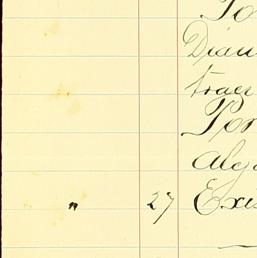 To
Dian
trae
Por
Alg
" 27 Exis